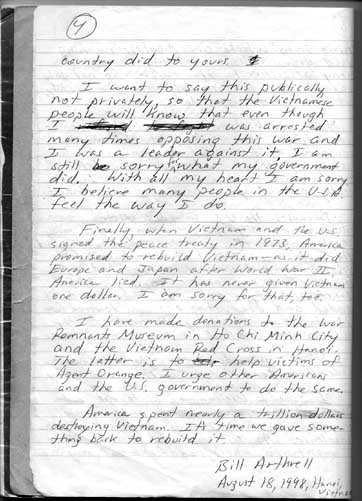 4
country did to yours
I want to say this publically
not privately, so that the Vietnamese
people will know that even though
I was arrested
many times opposing this war and
I was a leader against it, I am
still sorry for what my government
did. With all my heart I am sorry
I believe many people in the U.S.A.
feel the way I do.
Finally, when Vietnam and the U.S.
signed the peace treaty in 1973, America
promised to rebuild Vietnam—as it did
Europe and Japan after World War II,
America lied. It has never given Vietnam
one dollar. I am sorry for that, too.
I have made donations to the War
Remnants Museum in Ho Chi Minh City
and the Vietnam Red Cross in Hanoi.
The latter is to help victims of
Agent Orange. I urge other Americans
and the U.S. government to do the same.
America spent nearly a trillion dollars
destroying Vietnam. It's time we gave some-
thing back to rebuild it.
Bill Arthrell
August 18, 1998, Hanoi,